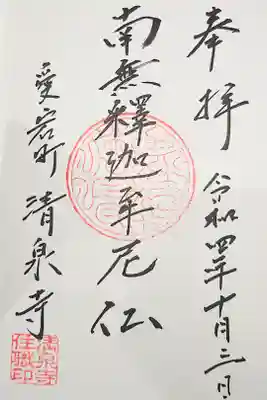 奉拝
令和四年十月三日
南無釋迦牟尼仏
愛宕町 清泉寺
清泉寺
住職印